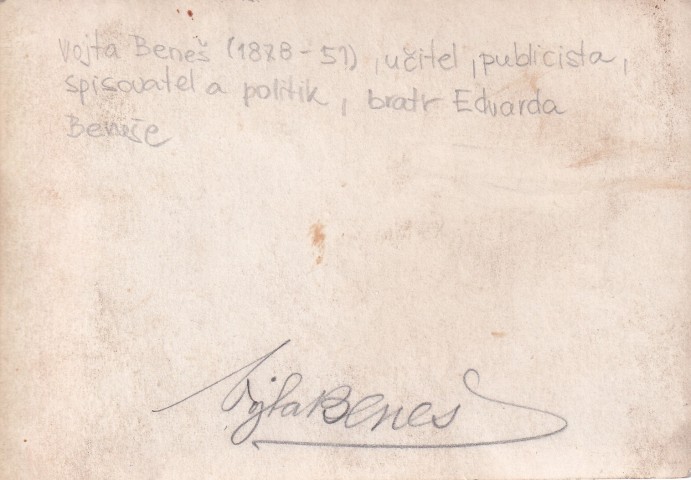 Vojta Beneš (1878-51), učitel, publicista,
spisovatel a politik, bratr Edvarda
Beneše
Vojta Beneš